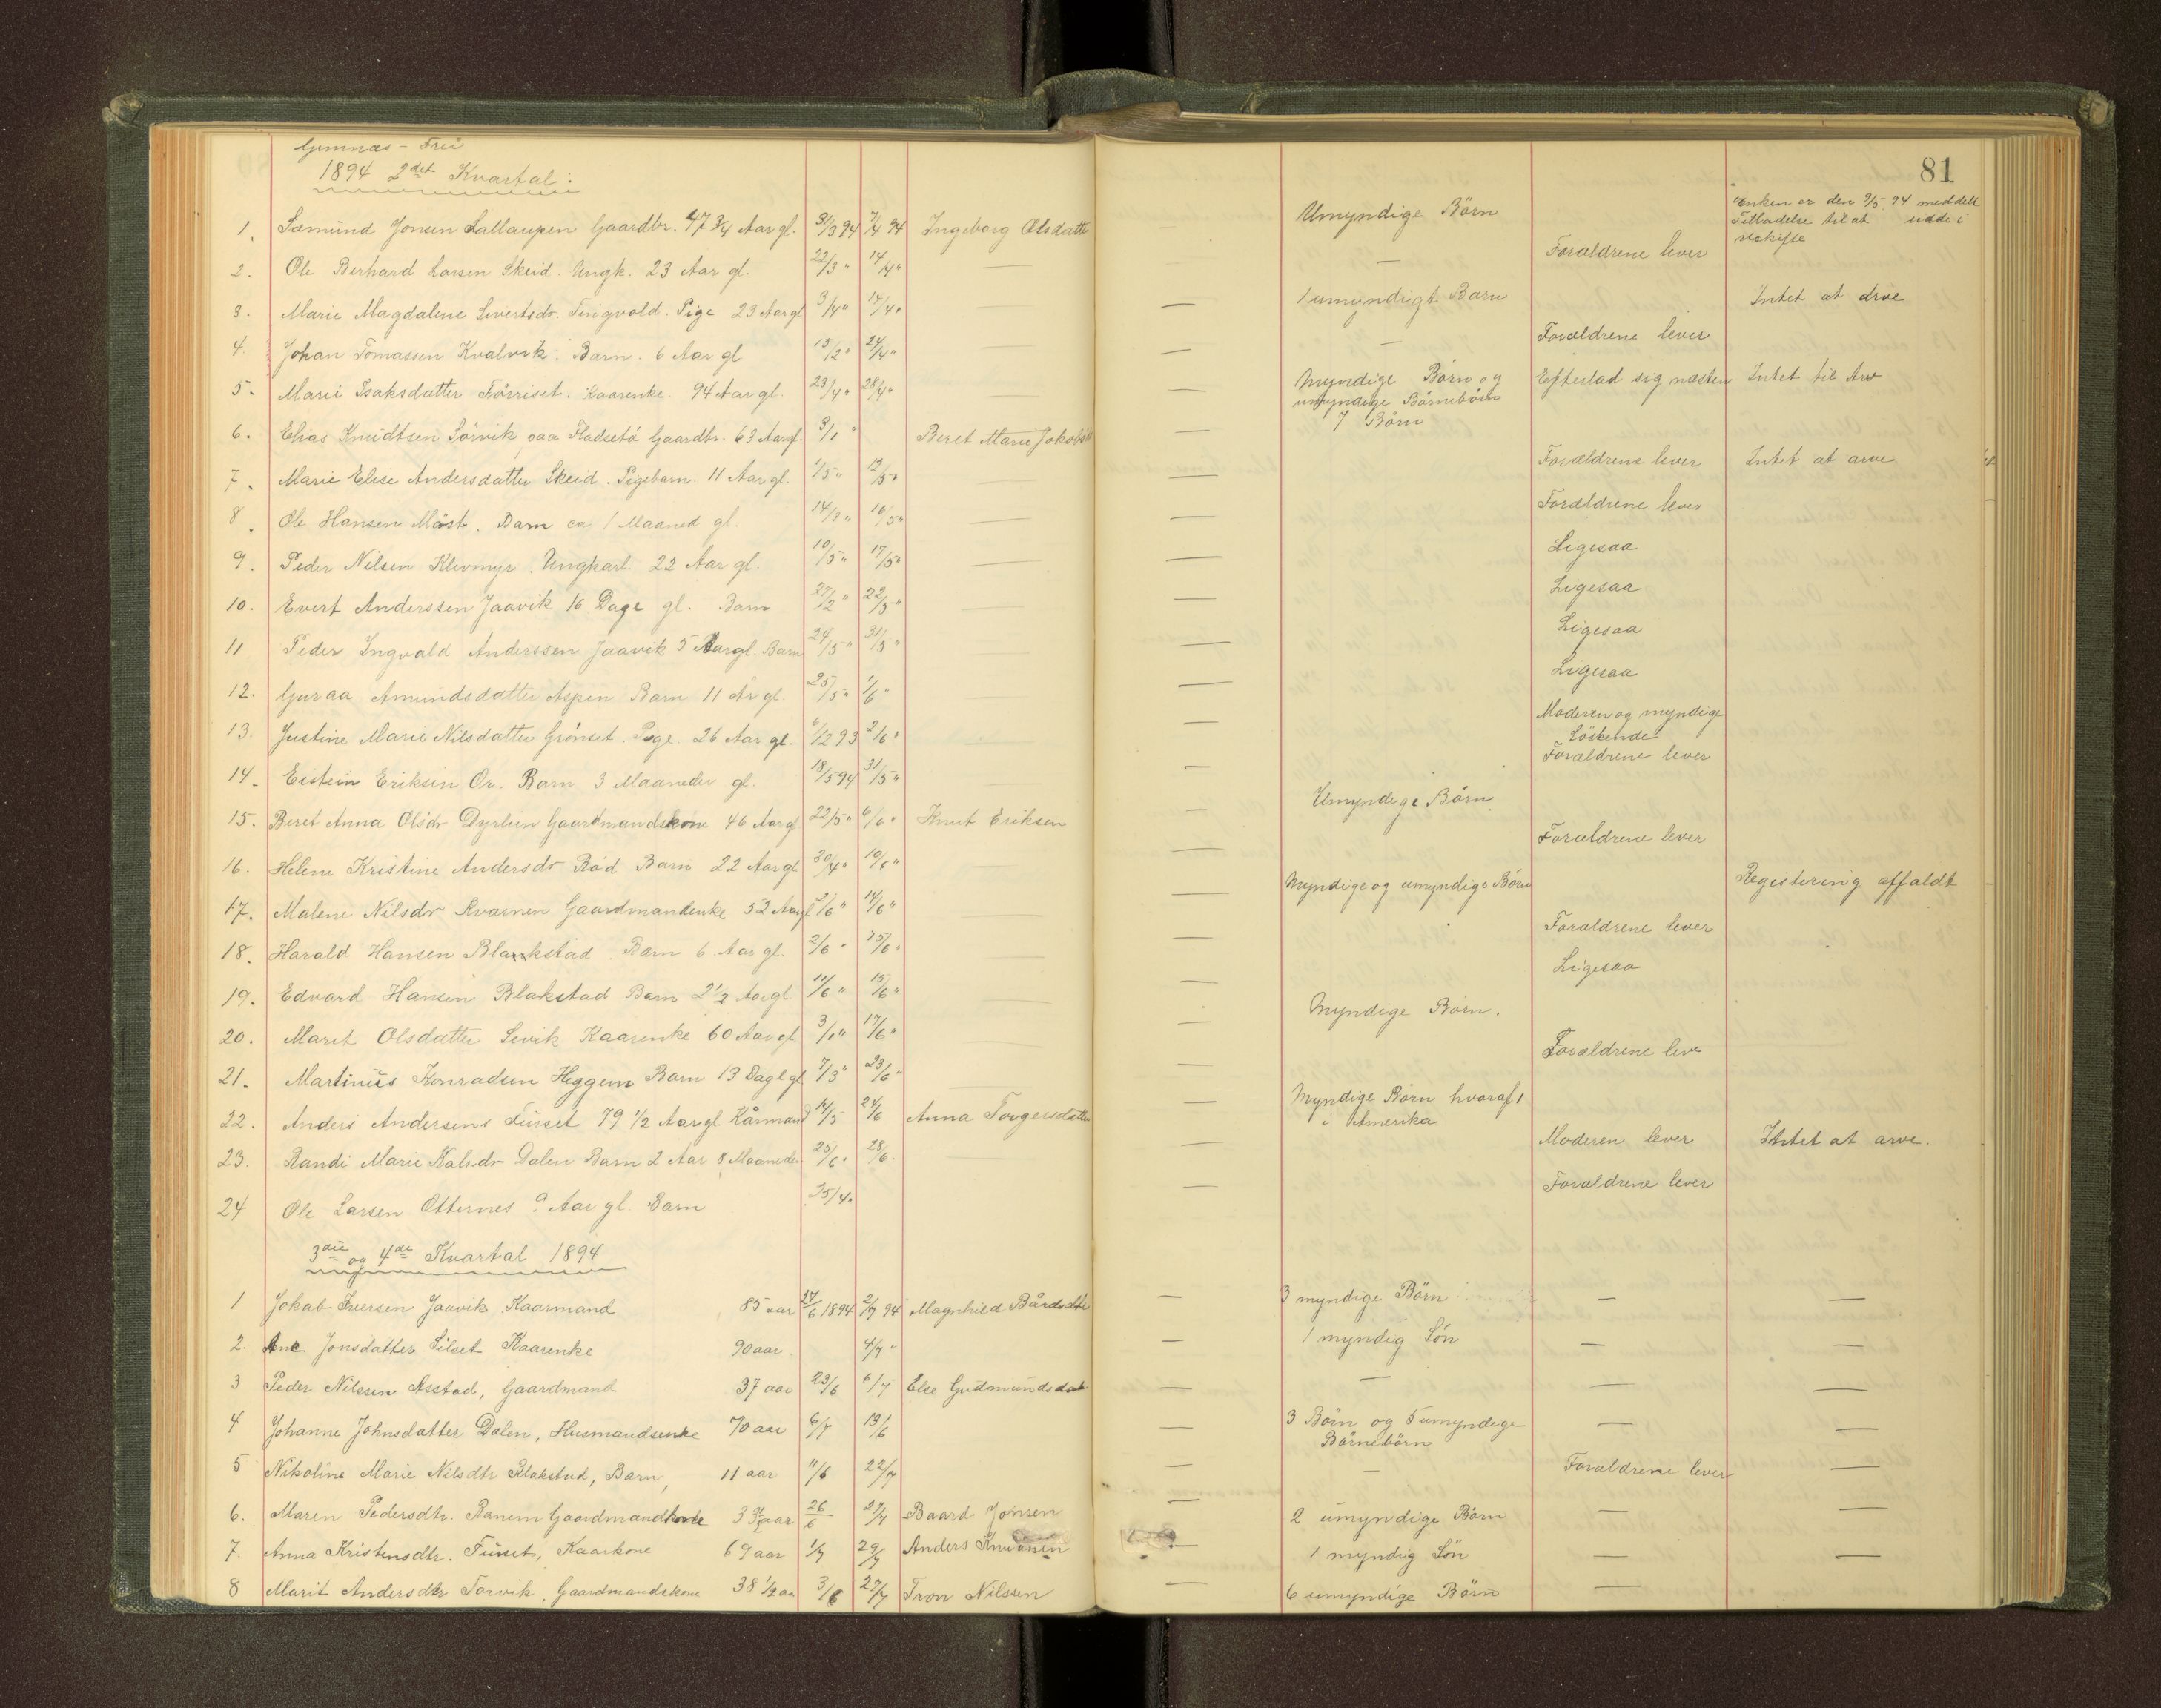 81
Gimnæs - Frei
1894 2det Kvartal:
1. Sæmund Jonsen Sallaupen Gaardbr. 47 3/4 Aar gl. 31/3 94 7/4 94 Ingeborg Olsdatte — Umyndige Börn Enken er den 9/5 94 meddelt
Tilladelse til at sidde i
uskifte
2. Ole Berhard Larsen Skeid. Ungk. 23 Aar gl. 22/3 " 14/4 " — — Forældrene lever
3. Marie Magdalene Sivertsdr. Tingvold. Pige 23 Aar gl 3/4 " 14/4 " — — 1 umyndigt Barn Intet at arve
4. Johan Tomassen Kvalvik. Barn. 6 Aar gl 15/2 " 24/4 " — — — Forældrene lever
5. Marie Isaksdatter Förriset. Kaarenke. 94 Aar gl. 23/4 " 28/4 " — Myndige Börn og Efterlad sig næsten Intet til Arv
umyndige Börnebörn
6. Elias Knudtsen Sörvik paa Fladsetö Gaardbr. 63 Aar gl. 3/1 " Beret Marie Jakobs 7 Börn
7. Marie Elise Andersdatter Skeid. Pigebarn. 11 Aar gl. 1/5 " 12/5 " — — Forældrene lever Intet at arve
8. Ole Hansen Möst. Barn ca 1 Maaned gl. 14/3 " 16/5 " — — Forældrene lever
9. Peder Nilsen Klevmyr. Ungkarl. 22 Aar gl. 10/5 " 17/5 " — — Ligesaa
10. Evert Anderssen Jaavik 16 Dage gl. Barn 27/12 " 22/5 " — — Ligesaa
11 Peder Ingvald Anderssen Jaavik 5 Aargl. Barn 24/5 " 31/5 " — — Ligesaa
12. Guraa Amundsdatter Aspen Barn 11 Ar gl. 25/5 " 1/6 " — — Ligesaa
13. Justine Marie Nilsdatter Grönset. Pige. 26 Aar gl. 6/12 93 2/6 " — — Moderen og myndige
Söskende
14. Eistein Eriksen Or. Barn 3 Maaneder gl. 18/5 94 31/5 " — — Forældrene lever
15. Beret Anna Olsdr Dyrlien Gaardmandskone 46 Aar gl 22/5 " 6/6 " Knut Eriksen — Umyndige Börn
16. Helene Kristine Andersdr Röd Barn 22 Aar gl 30/4 " 10/6 " — — Forældrene lever
17. Malene Nilsdr Kvarnen Gaardmandenke 52 Aar gl 2/6 " 14/6 " — — Myndige og umyndige Börn Registering affaldt
18. Harald Hansen Blankstad Barn 6 Aar gl. 2/6 " 15/6 " — — Forældrene lever
19. Edvard Hansen Blakstad Barn 2 1/2 Aar gl 11/6 " 15/6 " — — Ligesaa
20. Marit Olsdatter Sevik Kaarenke 60 Aar gl 3/1 " 17/6 " — — Myndige Börn.
21. Martinus Konradsen Heggem Barn 13 Dage gl 7/3 " 23/6 " — — Forældrene leve
22. Anders Andersens Furset 79 1/2 Aar gl. Kårmand 14/5 24/6 Anna Torgersdatter Myndige Börn hvoraf 1
i Amerika
23. Randi Marie Kalsdr Dalen Barn 2 Aar 8 Maaneder 25/6 " 28/6 " — Moderen lever Intet at arve.
24 Ole Larsen Otternes 9 Aar gl. Barn 25/4 " — Forældrene lever
3die og 4de Kvartal 1894
1 Jokab Iversen Jaavik Kaarmand 85 aar 27/6 1894 2/7 94 Magnhild Bårdsdtr — 3 myndige Börn — —
2. Ane Jonsdatter Silset Kaarenke 90 aar 4/7 " — 1 myndig Sön — —
3 Peder Nilssen Asstad, Gaardmand 37 aar 23/6 6/7 Else Gudmundsdat — — — —
4 Johanne Johnsdatter Dalen, Husmandsenke 70 aar 6/7 13/6 — 3 Börn og 5 umyndige — —
Börnebörn
5 Nikoline Marie Nilsdtr Blakstad, Barn, 11 aar 11/6 22/7 — — Forældrene lever —
6. Maren Pedersdtr. Ranem Gaardmandkone aar 26/6 27/7 Baard Jonsen — 2 umyndige Börn — —
7. Anna Kristensdtr. Furset, Kaarkone 69 aar 1/7 29/7 Anders Knudsen — 1 myndig Sön — —
8 Marit Andersdtr Torvik, Gaardmandskone 38 1/2 aa 3/6 27/7 Tron Nilssen — 6 umyndige Börn —